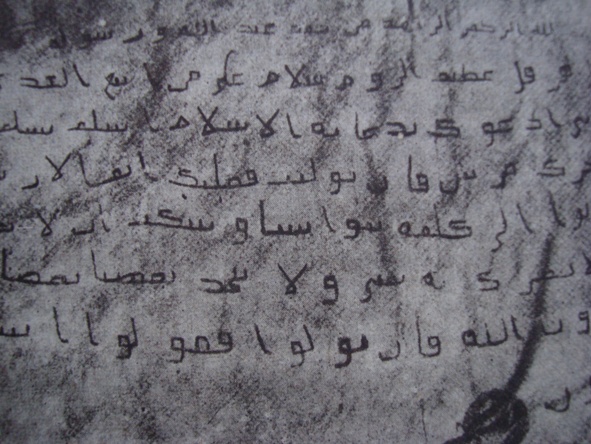 لله الرحمن الرحيم من محمد عبد الله ورسوله
هرقل عظيم الروم سلام على من اتبع الهدى
ادعوك بدعاية الاسلام اسلم تسلم
مرتين فان توليت فعليك اثم
الى كلمة سوا بيننا وبينكم ان لا
نشرك به شي ولا يتخذ بعضنا بعضا
الله فان تولوا فقولوا